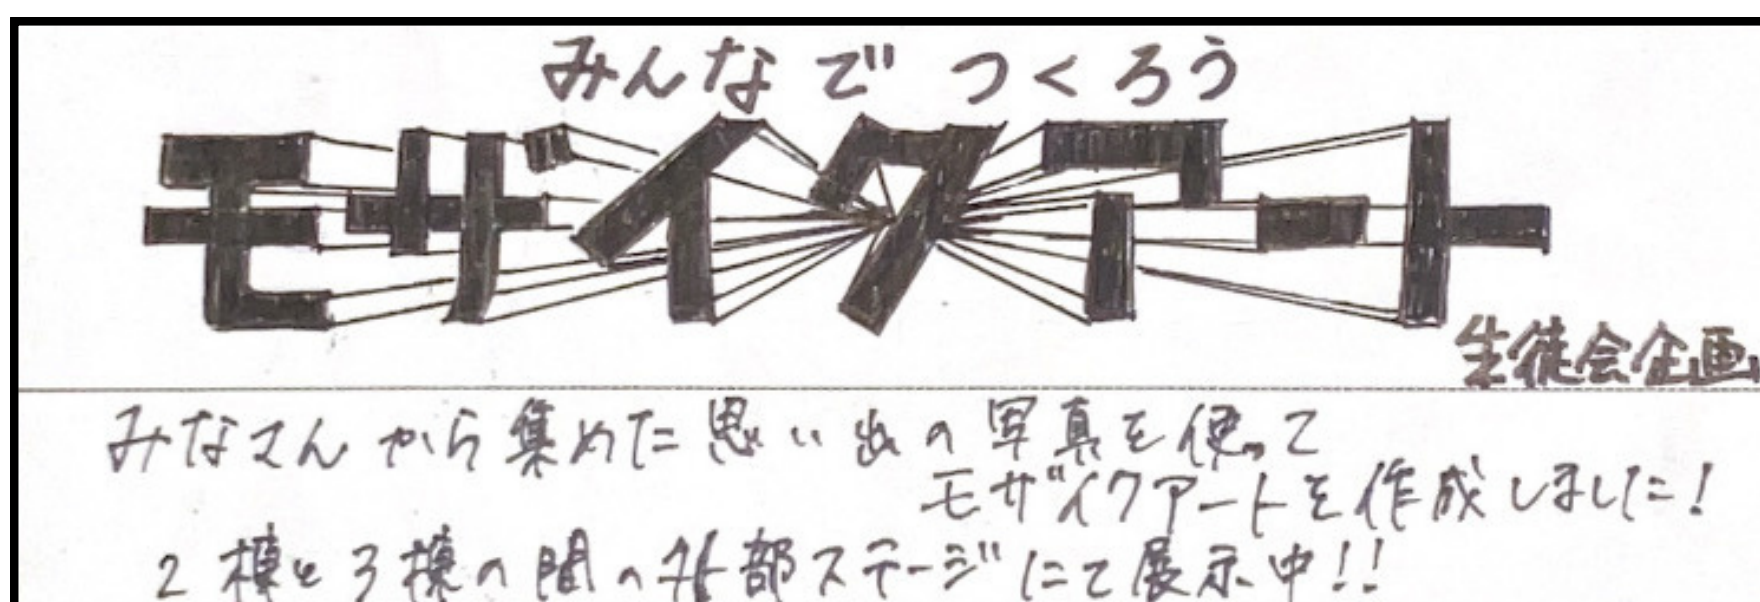 みんなで つくろう
モザイクアート
生徒会企画
みなさんから集めた思い出の写真を使って
モザイクアートを作成しました!
2棟と3棟の間の外部ステージにて展示中!!